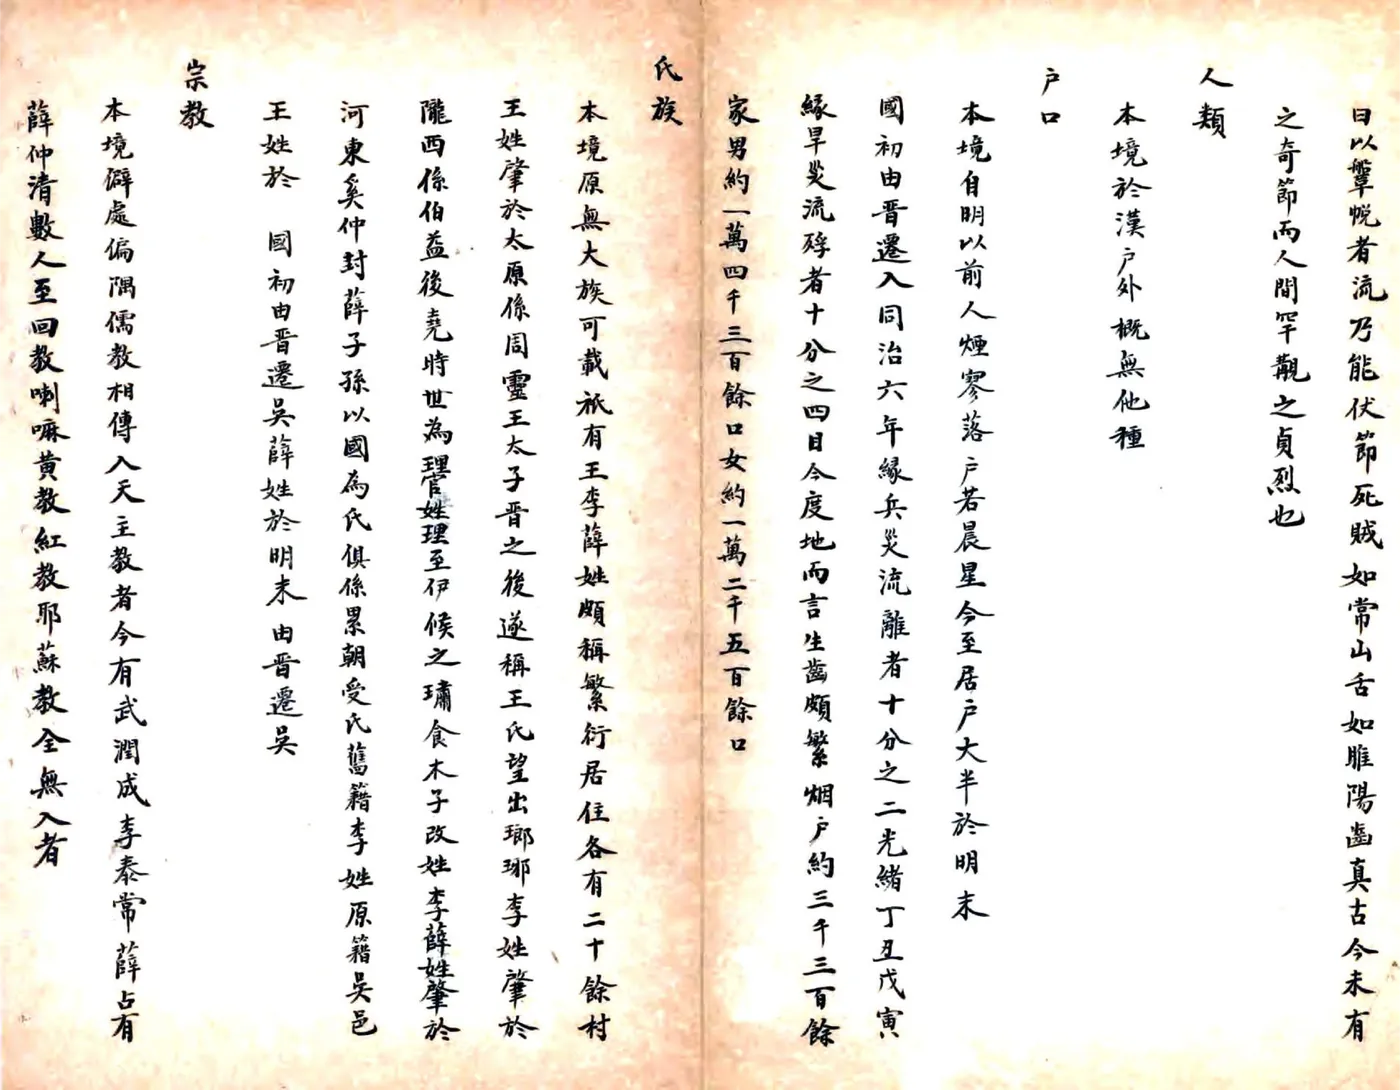 日以鞶帨者流乃能伏節死賊如常山舌如睢陽齒真古今未有
之奇節而人間罕觀之貞烈也
人類
本境於漢户外概無他種
户口
本境自明以前人煙寥落户若晨星今至居户大半於明末
國初由晋遷入同治六年緣兵災流離者十分之二光緒丁丑戊寅
緣旱災流殍者十分之四目今度地而言生齒頗繁烟户約三千三百餘
家男約一萬四千三百餘口女約一萬二千五百餘口
氏族
本境原無大族可載祇有王李薛姓頗稱繁衍居住各有二十餘村
王姓肇於太原係周靈王太子晋之後遂稱王氏望出瑯琊李姓肇於
隴西係伯益後堯時世為理官姓理至伊候之墉食木子改姓李薛姓肇於
河東奚仲封薛子孫以國為氏俱係累朝受氏舊籍李姓原籍吳邑
王姓於 國初由晋遷吳薛姓於明末由晋遷吳
宗教
本境僻處偏隅儒教相傳入天主教者今有武潤成李泰常薛占有
薛仲清數人至回教喇嘛黄教紅教耶蘇教全無入者